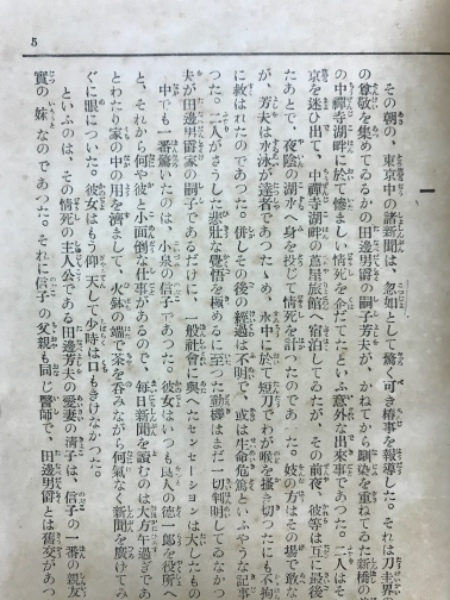 5
一
その朝の、東京中の諸新聞は、忽如として驚く可き椿事を報導した。それは刀圭界の
の尊敬を集めてゐるかの田邊男爵の嗣子芳夫が、かねてから馴染を重ねてゐた新橋の
の中禪寺湖畔に於て慘ましい情死を企だてたといふ意外な出來事であつた。二人はそ
京を迷ひ出て、中禪寺湖畔の蔦屋旅館へ宿泊してゐたが、その前夜、彼等は互に最後
たあとで、夜陰の湖水へ身を投じて情死を計つたのであつた。妓の方はその場で敢な
が、芳夫は水泳が達者であつたゝめ、水中に於て短刀でわが喉を搔き切つたにも不拘
に救はれたのであつた。併しその後の經過は不明で、或は生命危篤といふやうな記事
つた。二人がさうした悲壯な覺悟を極めるに至つた動機はまだ一切判明してゐなかつ
夫が田邊男爵家の嗣子であるだけに、一般社會に與へたセンセーションは大したもの
中でも一番驚いたのは、小泉の信子であつた。彼女はいつも良人の德一郎を役所へ
と、それから何や彼と小面倒な仕事があるので、毎日新聞を讀むのは大方午過ぎであ
とわたり家の中の用を濟まして、火鉢の端で茶を呑みながら何氣なく新聞を廣げてみ
ぐに眼についた。彼女はもう仰天して少時は口もきけなかつた。
といふのは、その情死の主人公である田邊芳夫の愛妻の淸子は、信子の一番の親友
實の妹なのであつた。それに信子の父親も同じ醫師で、田邊男爵とは舊交があつ